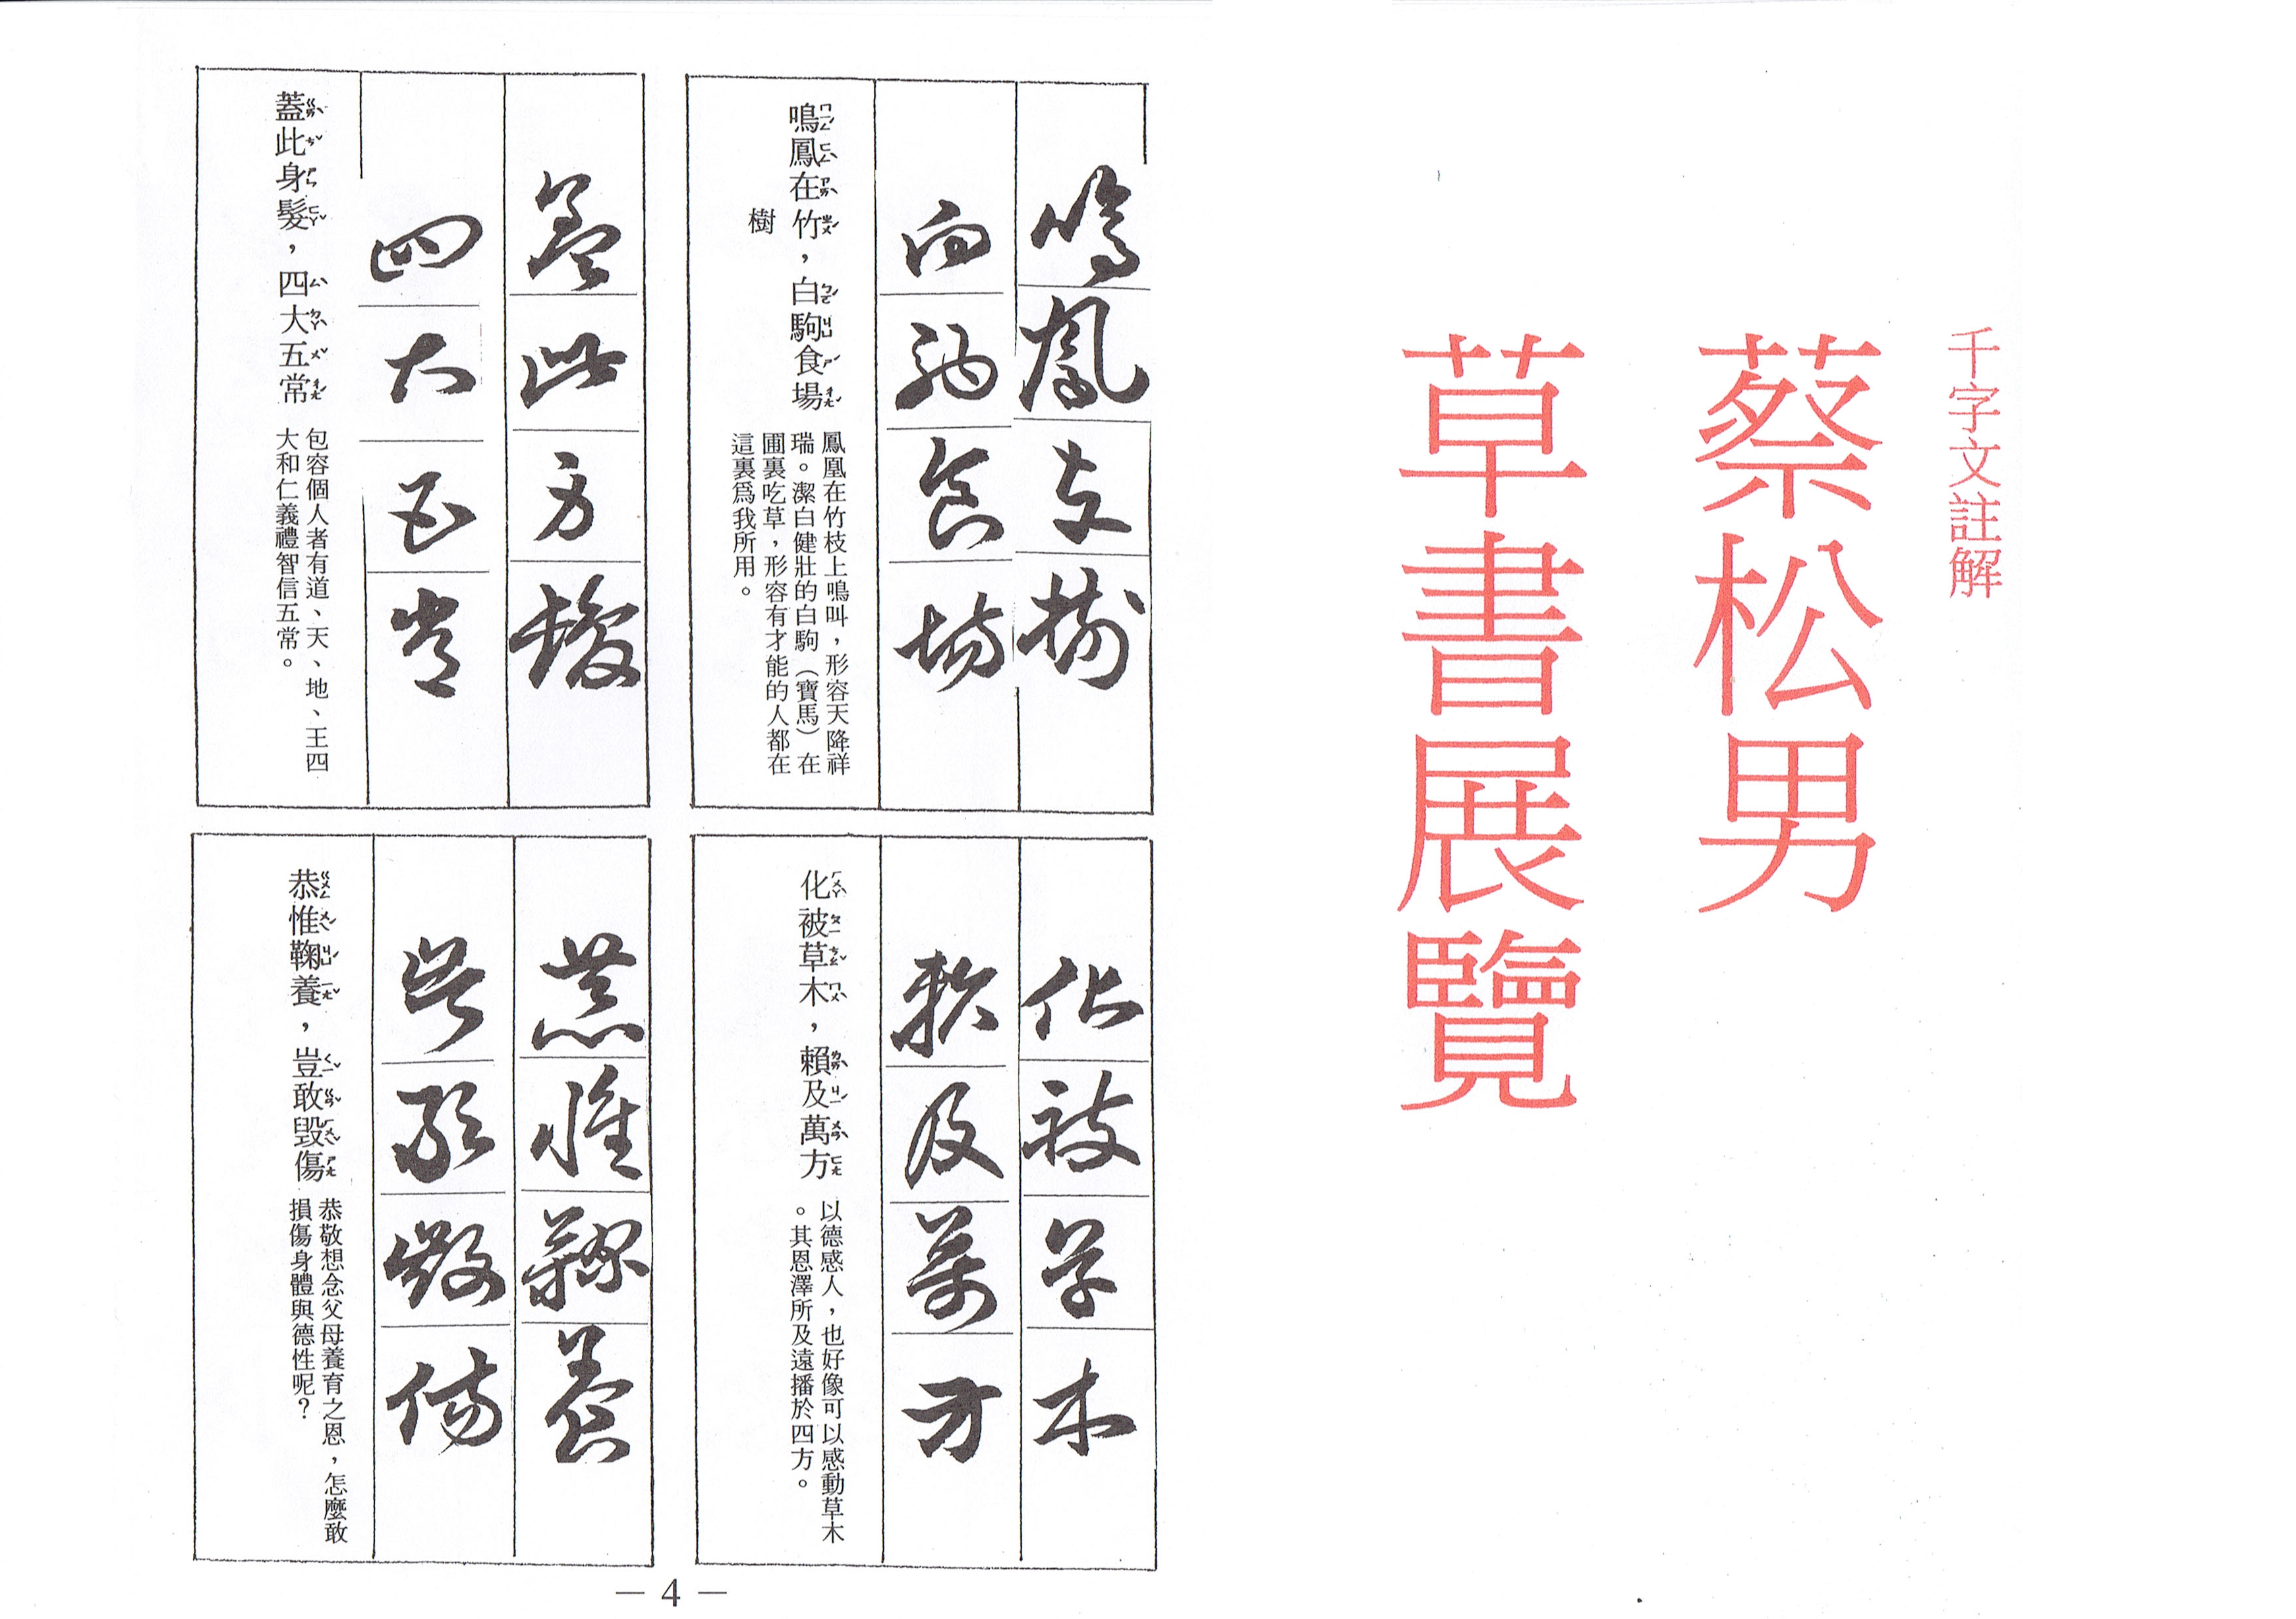 千字文註解
蔡松男
草書展覽
鳴鳳在樹
白駒食場
鳴鳳在竹，白駒食場
樹
鳳凰在竹枝上鳴叫，形容天降祥
瑞。潔白健壯的白駒（寶馬）在
圃裏吃草，形容有才能的人都在
這裏爲我所用。
化被草木
賴及萬方
化被草木，賴及萬方
以德感人，也好像可以感動草木
。其恩澤所及遠播於四方。
蓋此身髮
四大五常
蓋此身髮，四大五常
包容個人者有道、天、地、王四
大和仁義禮智信五常。
恭惟鞠養
豈敢毀傷
恭惟鞠養，豈敢毀傷
恭敬想念父母養育之恩，怎麼敢
損傷身體與德性呢？
— 4 —